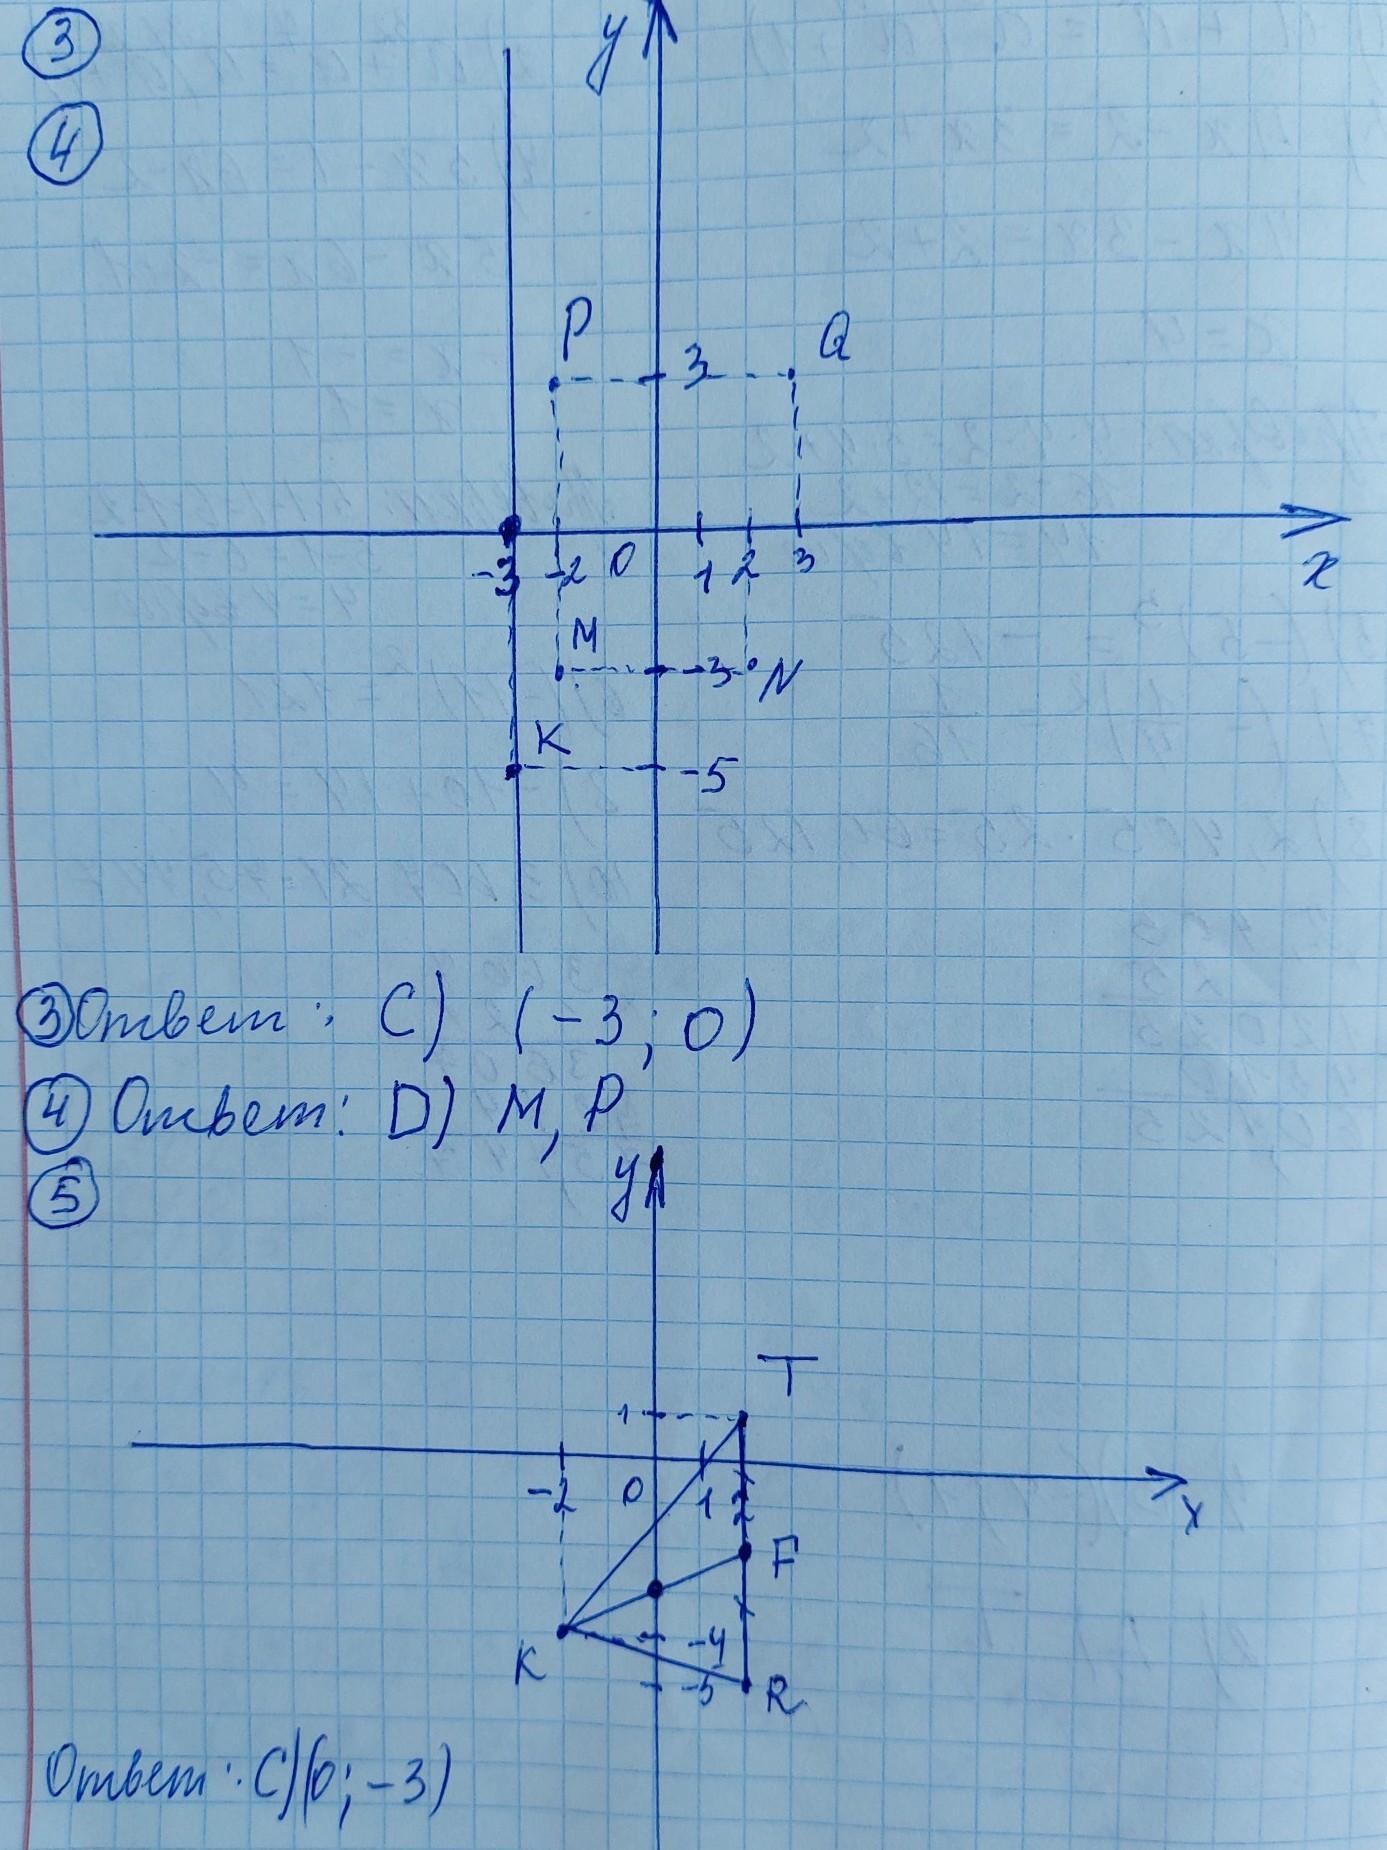 3
y
4
P
Q
3
-3 -2 0 1 2 3
x
M
-3 N
K
-5
3 Ответ: C) (-3; 0)
4 Ответ: D) M, P
5
y
T
1
-2 0 1 2
x
F
K
-4
-5 R
Ответ: C) (0; -3)